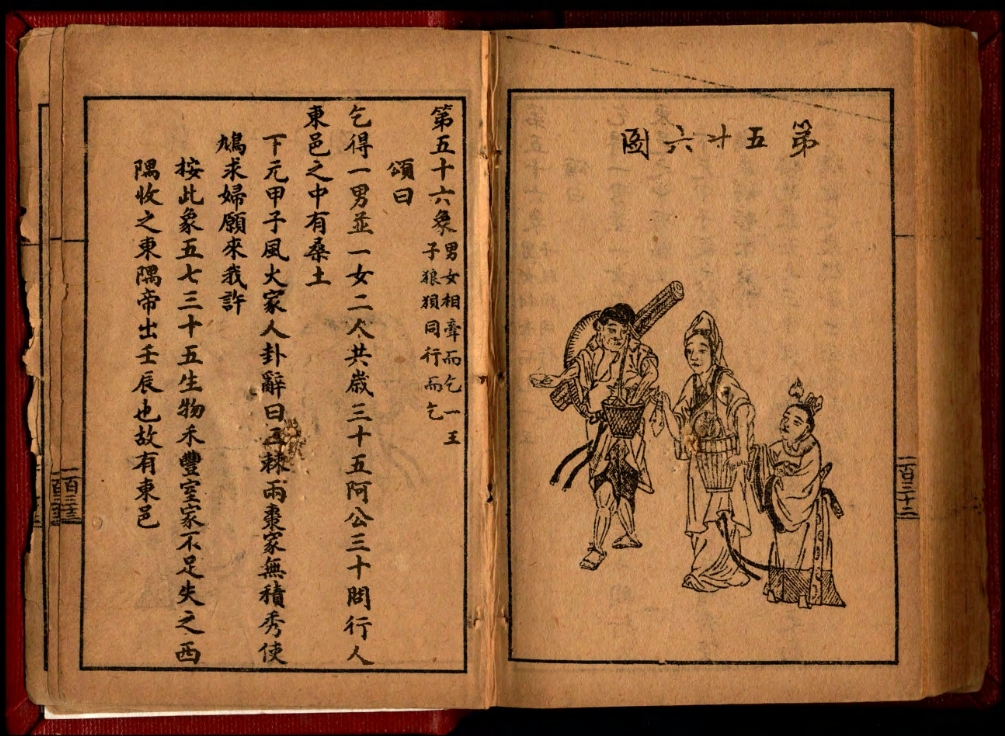 第五十六圖
一百三十二
第五十六象 男女相牽而乞一王
子狼狽同行而乞
頌曰
乞得一男並一女二人共歲三十五阿公三十問行人
東邑之中有桑土
下元甲子風火家人卦辭曰 棘兩棗家無積秀使
鳩求婦願來我許
按此象五七三十五生物禾豐室家不足失之西
隅收之東隅帝出壬辰也故有東邑
一百三十三